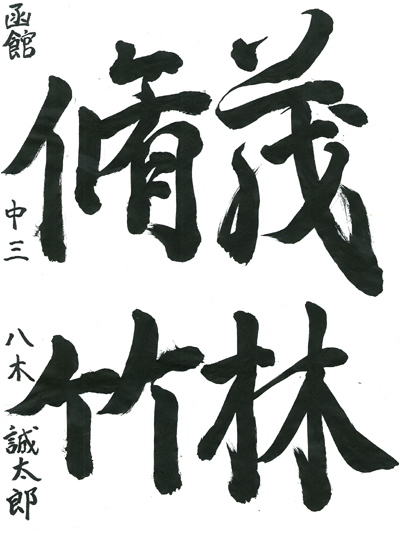 茂林
脩竹
函館 中三 八木誠太郎